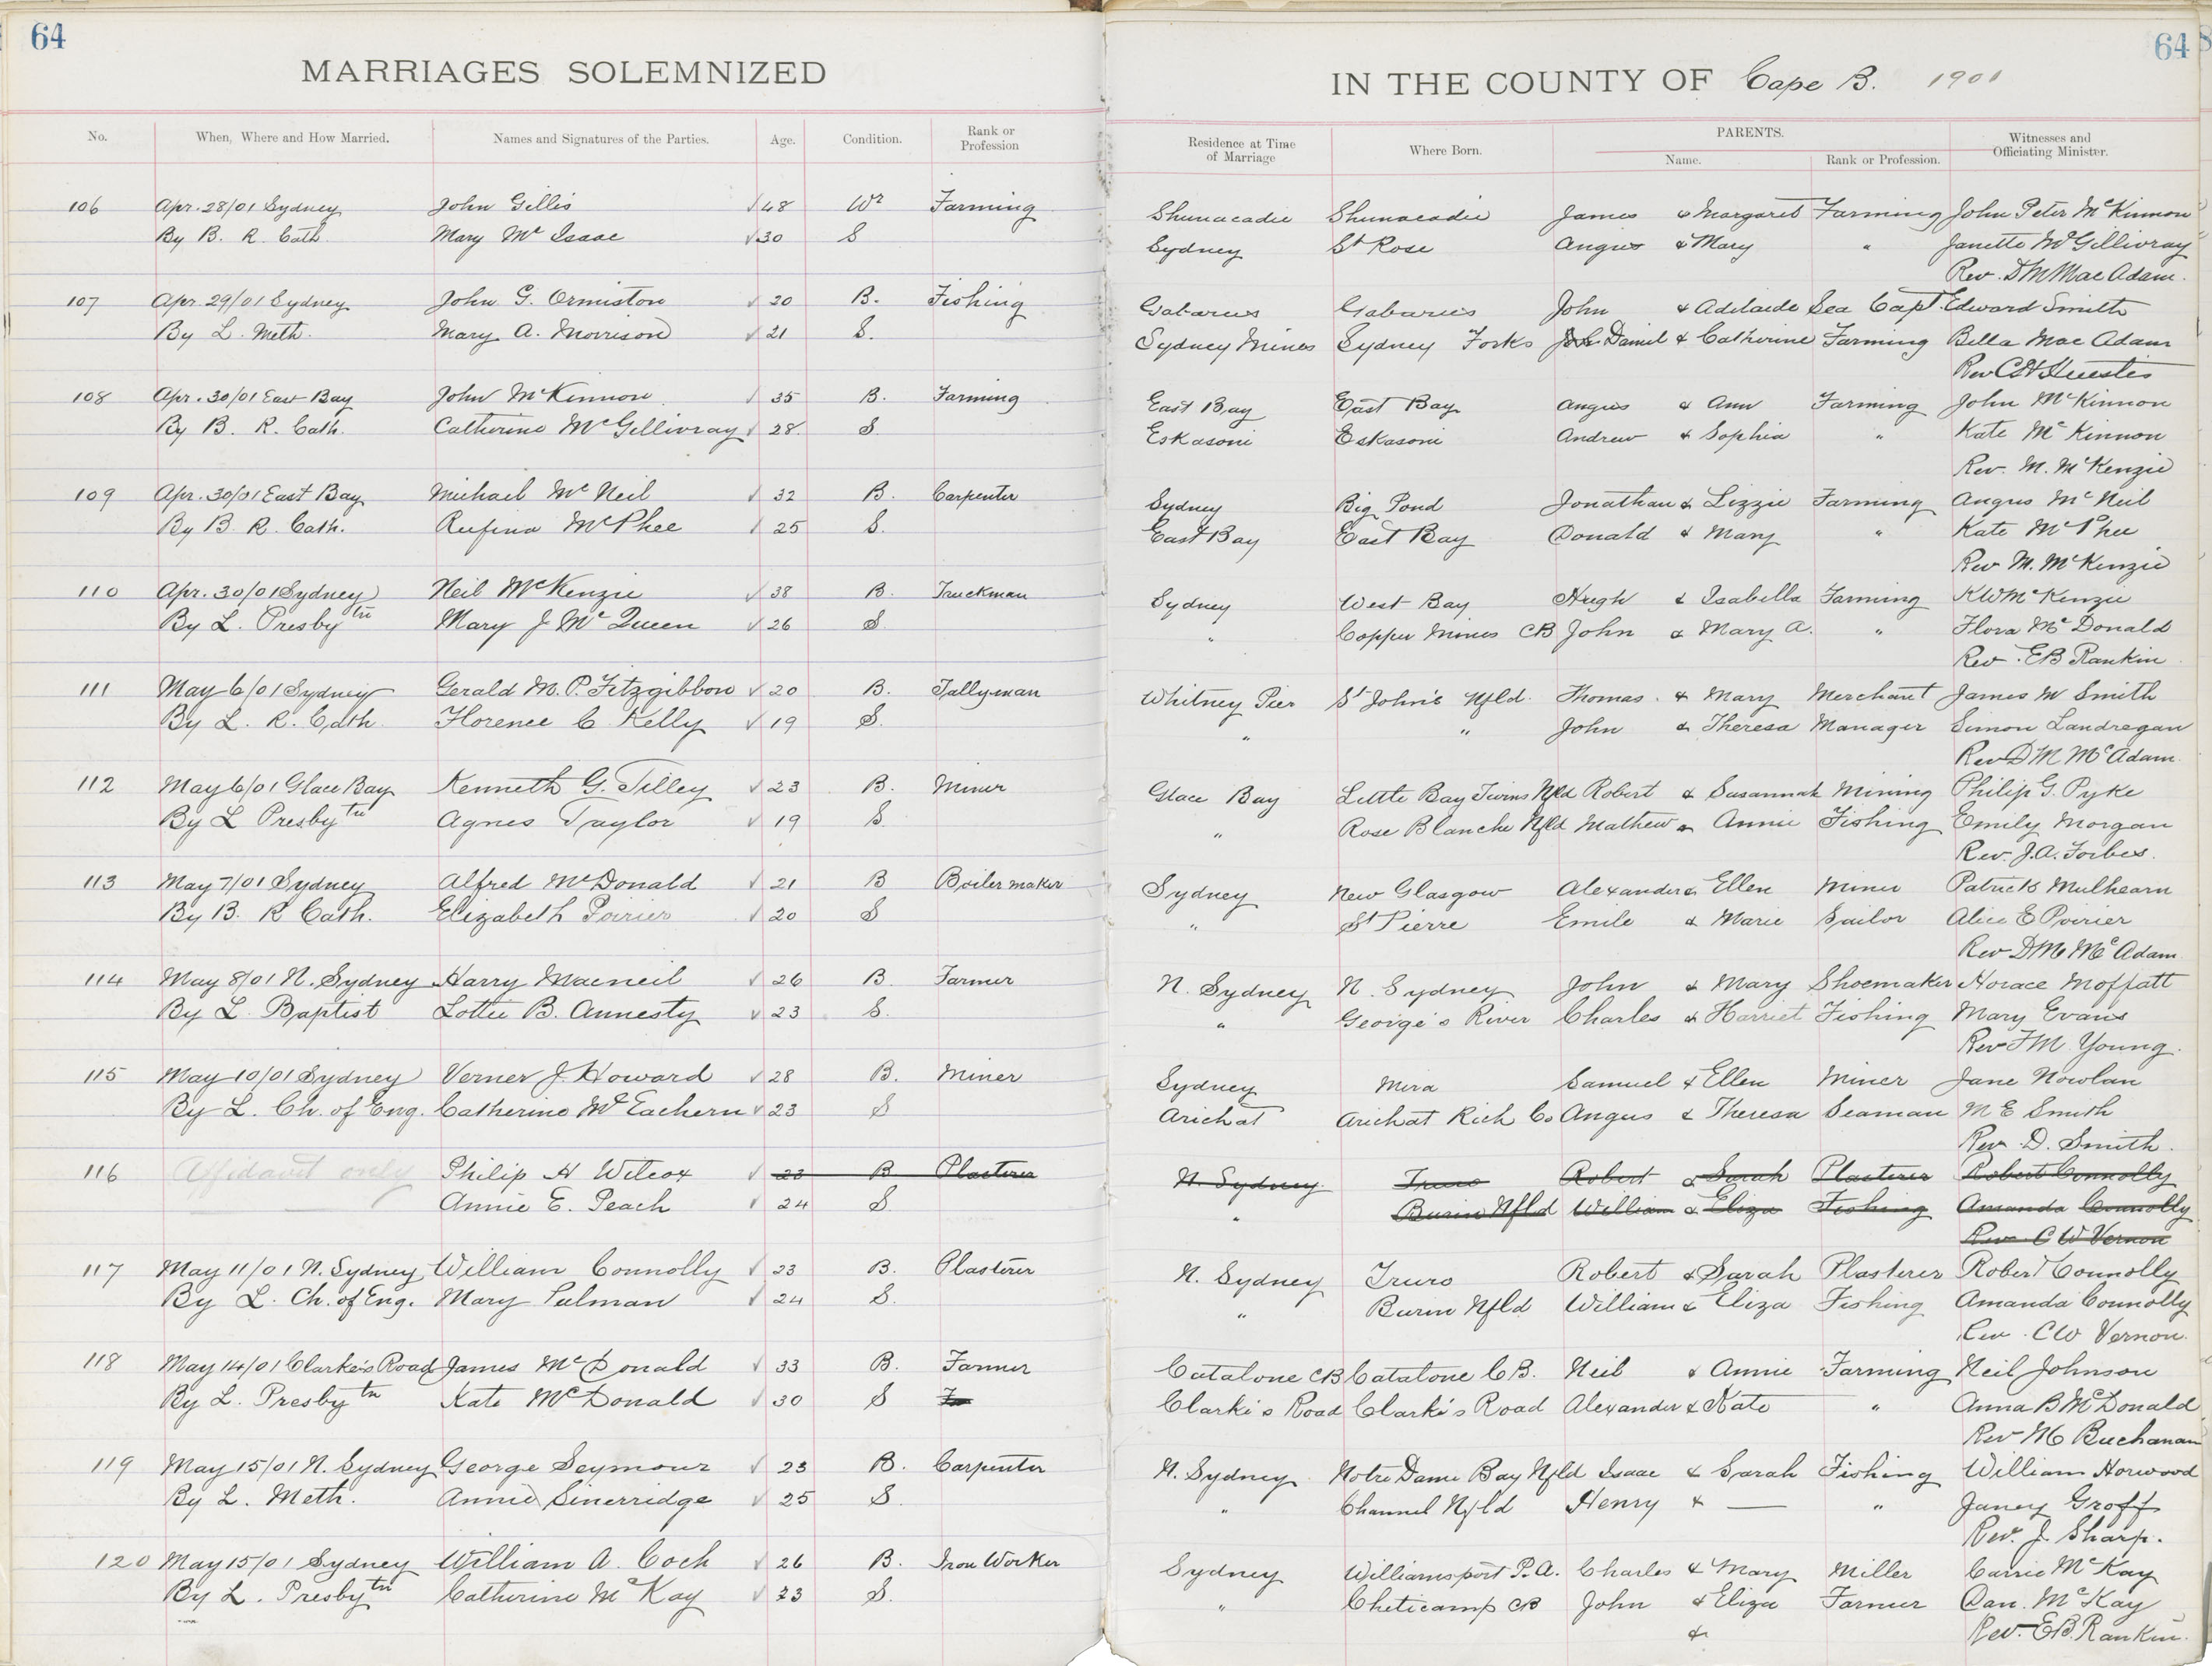 64
MARRIAGES SOLEMNIZED
No. When, Where and How Married. Names and Signatures of the Parties. Age. Condition. Rank or Profession
106 Apr. 28/01 Sydney John Gillis 48 Wr Farming
By B. R. Cath. Mary Mc Isaac 30 S
107 Apr. 29/01 Sydney John G. Ormiston 20 B. Fishing
By L. Meth. Mary A. Morrison 21 S.
108 Apr. 30/01 East Bay John McKinnon 35 B. Farming
By B. R. Cath. Catherine McGillivray 28 S
109 Apr. 30/01 East Bay Michael McNeil 32 B. Carpenter
By B. R. Cath. Rufina McPhee 25 S.
110 Apr. 30/01 Sydney Neil McKenzie 38 B. Truckman
By L. Presbytn Mary J McQueen 26 S
111 May 6/01 Sydney Gerald M. P. Fitzgibbon 20 B. Tallyman
By L. R. Cath. Florence C Kelly 19 S.
112 May 6/01 Glace Bay Kenneth G. Tilley 23 B. Miner
By L Presbytn Agnes Taylor 19 S
113 May 7/01 Sydney Alfred McDonald 21 B Boiler maker
By B. R Cath. Elizabeth Poirier 20 S
114 May 8/01 N. Sydney Harry Macneil 26 B Farmer
By L. Baptist Lottie B. Annesty 23 S.
115 May 10/01 Sydney Verner J. Howard 28 B. Miner
By L. Ch. of Eng. Catherine McEachern 23 S
116 Affidavit only Philip H Wilcox 23 B Plasterer
Annie E. Peach 24 S
117 May 11/01 N. Sydney William Connolly 23 B. Plasterer
By L. Ch. of Eng. Mary Pulman 24 S.
118 May 14/01 Clarke's Road James McDonald 33 B. Farmer
By L. Presbytn Kate McDonald 30 S
119 May 15/01 N. Sydney George Seymour 23 B. Carpenter
By L. Meth. Annie Sinerridge 25 S.
120 May 15/01 Sydney William A. Coch 26 B. Iron Worker
By L. Presbytn Catherine McKay 23 S.
64
IN THE COUNTY OF Cape B. 1901
Residence at Time of Marriage Where Born. PARENTS. Name. Rank or Profession. Witnesses and Officiating Minister.
Shunacadie Shunacadie James & Margaret Farming John Peter McKinnon
Sydney St Rose Angus & Mary " Janette McGillivray
Rev. D M Mac Adam.
Gabarus Gabarus John & Adelaide Sea Capt. Edward Smith
Sydney Mines Sydney Forks Daniel & Catherine Farming Bella Mac Adam
Rev C H Huestis
East Bay East Bay Angus & Ann Farming John McKinnon
Eskasoni Eskasoni Andrew & Sophia " Kate McKinnon
Rev. M. McKenzie
Sydney Big Pond Jonathan & Lizzie Farming Angus McNeil
East Bay East Bay Donald & Mary " Kate McPhee
Rev M. McKenzie
Sydney West Bay Hugh & Isabella Farming K W McKenzie
" Copper Mines CB John & Mary A. " Flora McDonald
Rev. E B Rankin
Whitney Pier St John's Nfld. Thomas & Mary Merchant James W Smith
" " John & Theresa Manager Simon Landregan
Rev D M McAdam.
Glace Bay Little Bay Twins Nfld Robert & Susannah Mining Philip G. Pyke
" Rose Blanche Nfld Mathew & Annie Fishing Emily Morgan
Rev. J. A. Forbes.
Sydney New Glasgow Alexander & Ellen Miner Patrick Mulhearn
" St Pierre Emile & Marie Sailor Alice E Poirier
Rev D M McAdam
N. Sydney N. Sydney John & Mary Shoemaker Horace Moffatt
" George's River Charles & Harriet Fishing Mary Evans
Rev F M Young.
Sydney Mira Samuel & Ellen Miner Jane Nowlan
Arichat Arichat Rich Co Angus & Theresa Seaman M E Smith
Rev. D. Smith.
N. Sydney Truro Robert & Sarah Plasterer Robert Connolly
" Burin Nfld William & Eliza Fishing Amanda Connolly
Rev. C W Vernon
N. Sydney Truro Robert & Sarah Plasterer Robert Connolly
" Burin Nfld William & Eliza Fishing Amanda Connolly
Rev. C W Vernon.
Catalone CB Catalone C B. Neil & Annie Farming Neil Johnson
Clarke's Road Clarke's Road Alexander & Kate " Anna B McDonald
Rev M Buchanan
N. Sydney Notre Dame Bay Nfld Isaac & Sarah Fishing William Horwood
" Channel Nfld Henry & — " Janey Groff
Rev. J. Sharp.
Sydney Williamsport P.A. Charles & Mary Miller Carrie McKay
" Cheticamp CB John & Eliza Farmer Dan. McKay
& Rev. E B. Rankin.